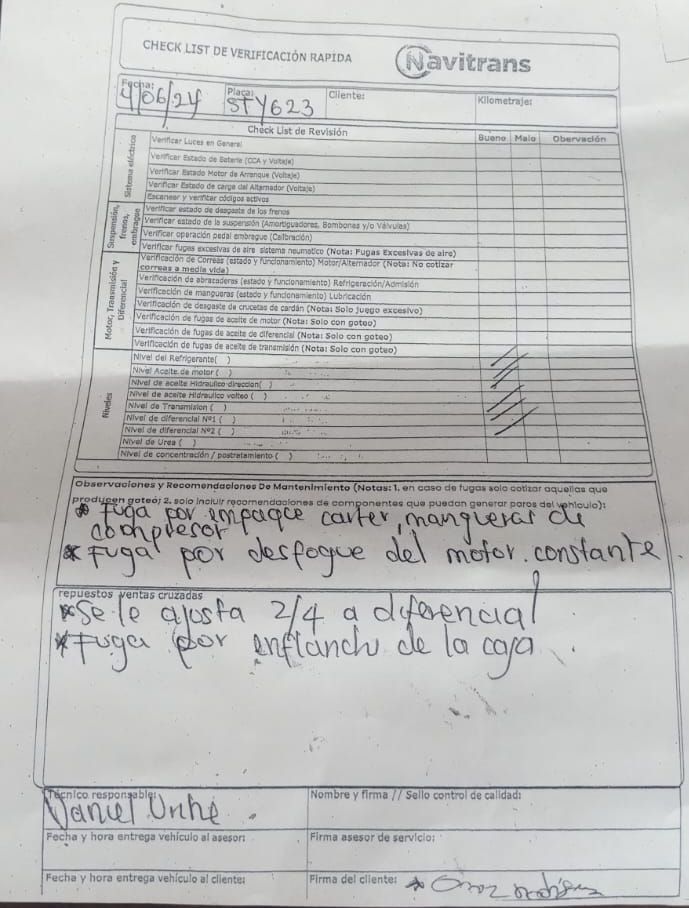 CHECK LIST DE VERIFICACIÓN RAPIDA
Navitrans
Fecha: 4/06/24 Placa: STY623 Cliente: Kilometraje:
Check List de Revisión Bueno Malo Obervación
Sistema eléctrico
Verificar Luces en General
Verificar Estado de Batería (CCA y Voltaje)
Verificar Estado Motor de Arranque (Voltaje)
Verificar Estado de carga del Alternador (Voltaje)
Escanear y verificar códigos activos
Suspensión, frenos, embrague
Verificar estado de desgaste de los frenos
Verificar estado de la suspensión (Amortiguadores, Bombonas y/o Válvulas)
Verificar operación pedal embrague (Calibración)
Verificar fugas excesivas de aire sistema neumatico (Nota: Fugas Excesivas de aire)
Motor, Transmisión y Diferencial
Verificación de Correas (estado y funcionamiento) Motor/Alternador (Nota: No cotizar
correas a media vida)
Verificación de abrazaderas (estado y funcionamiento) Refrigeración/Admisión
Verificación de mangueras (estado y funcionamiento) Lubricación
Verificación de desgaste de crucetas de cardán (Nota: Solo juego excesivo)
Verificación de fugas de aceite de motor (Nota: Solo con goteo)
Verificación de fugas de aceite de diferencial (Nota: Solo con goteo)
Verificación de fugas de aceite de transmisión (Nota: Solo con goteo)
Niveles
Nivel del Refrigerante( )
Nivel Aceite de motor ( )
Nivel de aceite Hidraulico direccion( )
Nivel de aceite Hidraulico volteo ( )
Nivel de Transmision ( )
Nivel de diferencial Nº1 ( )
Nivel de diferencial Nº2 ( )
Nivel de Urea ( )
Nivel de concentración / postratamiento ( )
Observaciones y Recomendaciones De Mantenimiento (Notas: 1. en caso de fugas solo cotizar aquellas que
producen goteo; 2. solo incluir recomendaciones de componentes que puedan generar paros del vehículo):
* Fuga por empaque carter, mangueras de
compresor
* Fuga por desfogue del motor. constante.
repuestos ventas cruzadas
* Se le ajusta 2/4 a diferencial
* Fuga por enflanche de la caja
Técnico responsable: Nombre y firma // Sello control de calidad:
Daniel Uribe
Fecha y hora entrega vehículo al asesor: Firma asesor de servicio:
Fecha y hora entrega vehículo al cliente: Firma del cliente: